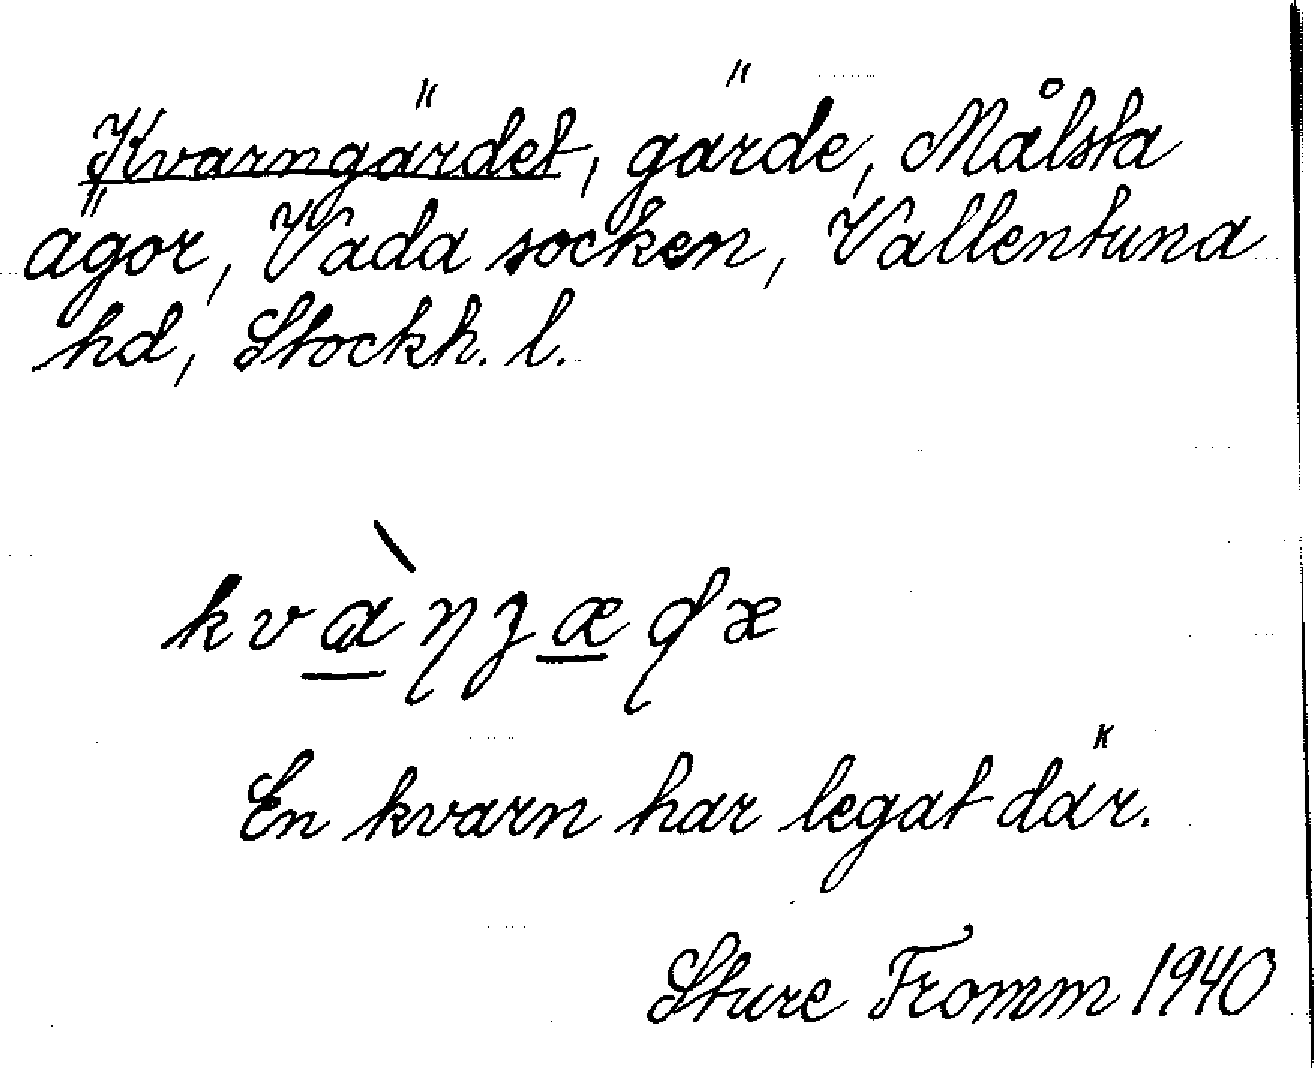 Kvarngärdet, gärde, Målsta
ägor, Vada socken, Vallentuna
hd, Stockh. l.
kvɑ̀ŋʒæɖæ
En kvarn har legat där.
Sture Fromm 1940